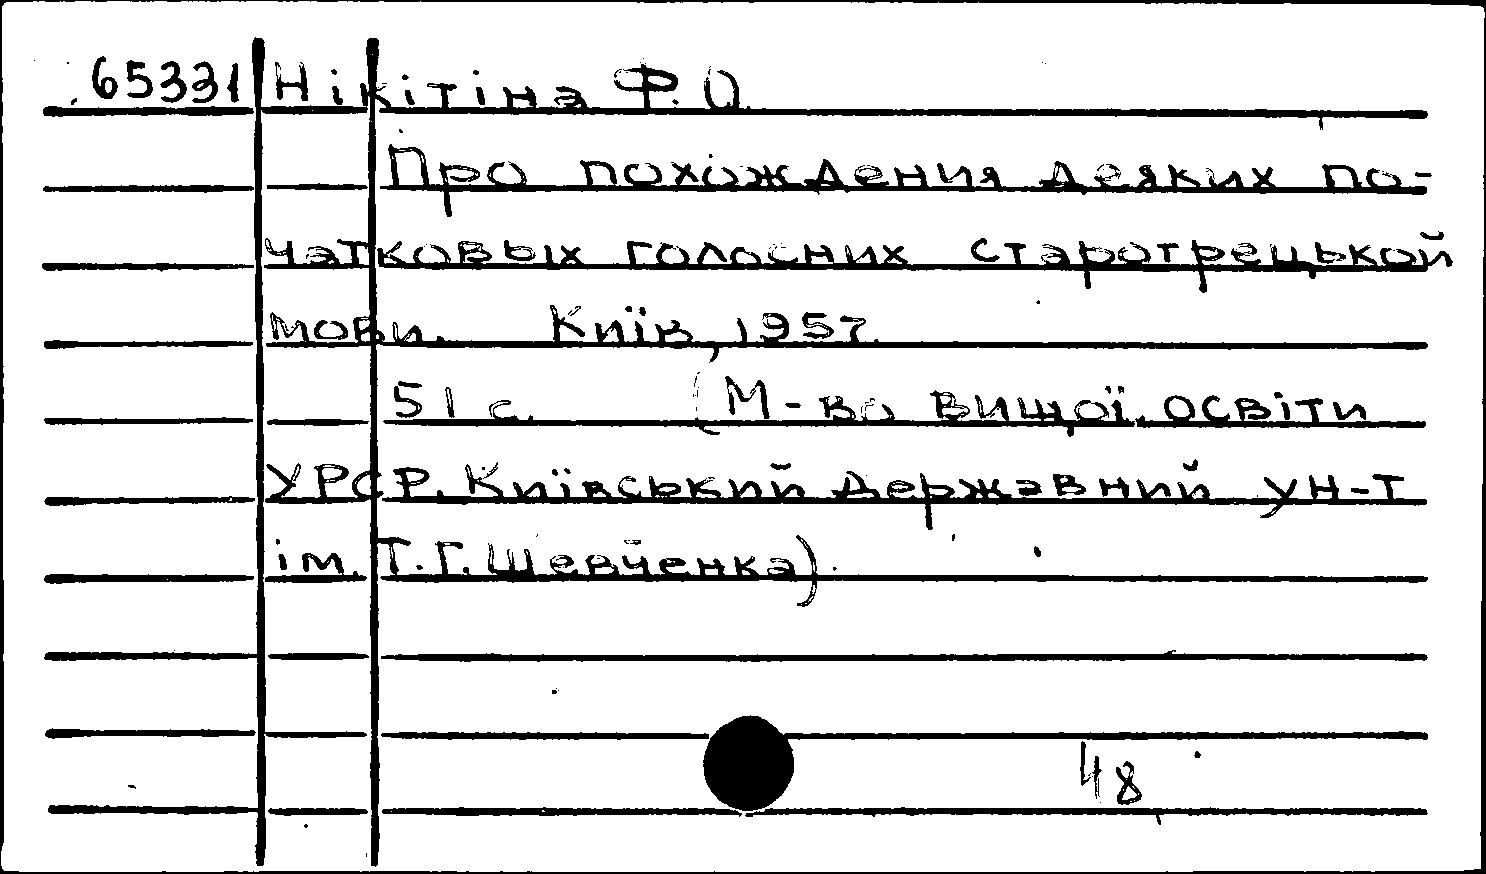 65331 Нікітіна Ф.О.
Про походження деяких по-
чатковых голосних старогрецької
мови. Київ, 1957.
51 с. (М-во вищої освіти
УРСР. Київський державний ун-т
ім. Т.Г. Шевченка)
48